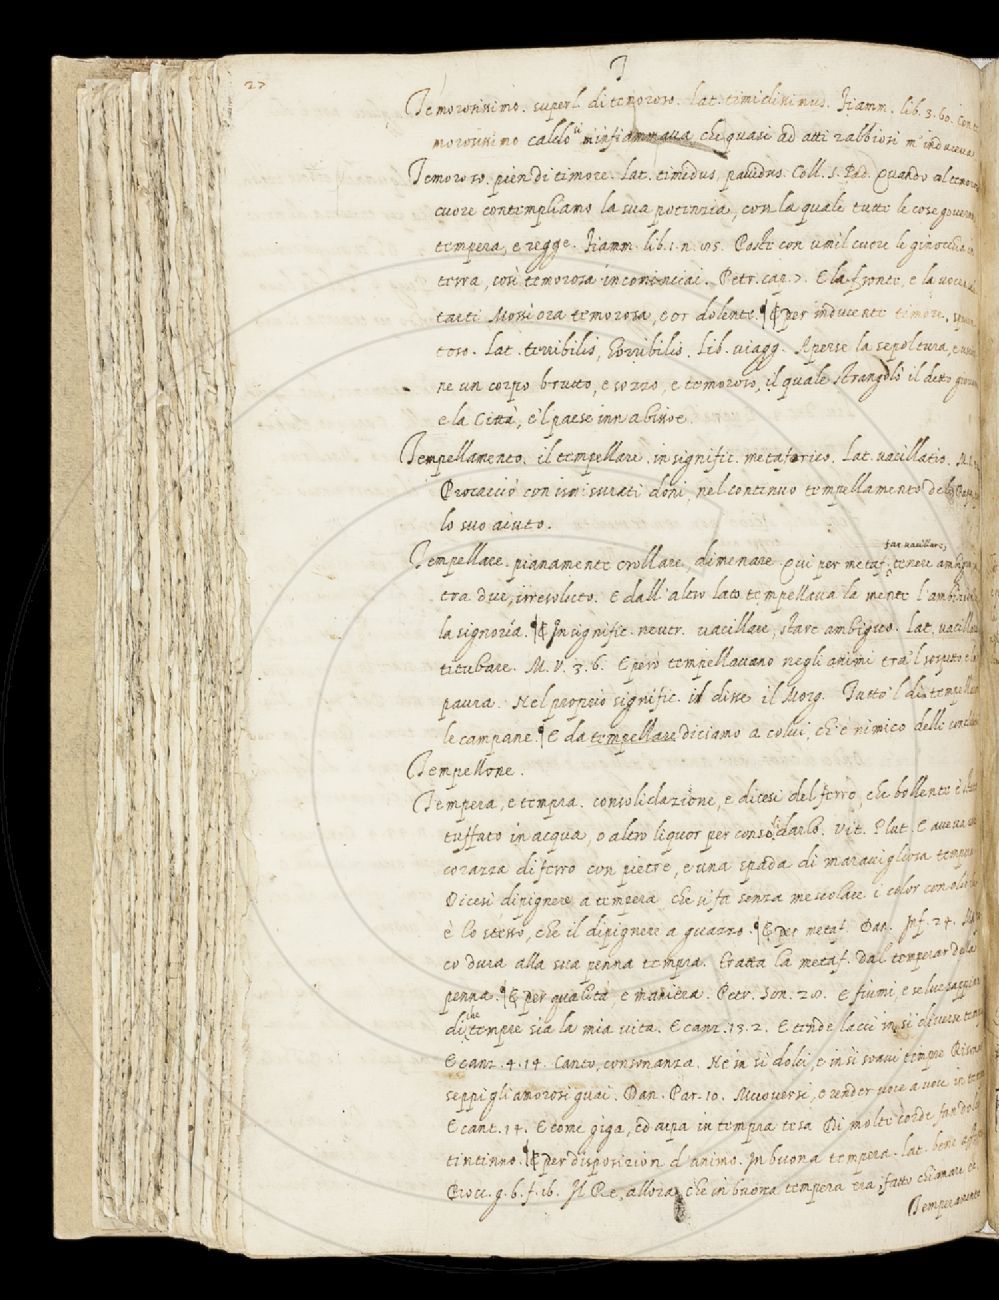 27
T
Temorosissimo. superl. di temoroso. Lat. timidissimus. Fiamm. lib. 3. 60. Con te
morosissimo m'infiammava che quasi ad atti rabbiosi m'induceva
Temoroso. pien di timore. Lat. timidus, pavidus. Coll. S. Pad. Quando col temoroso
cuore contempliamo la sua potenzia, con la quale tutte le cose governa
tempera, e regge. Fiamm. lib. 1. n. Poste con umil cuore le ginocchia in
terra, così temorosa incominciai. Petr. cap. 7. E la fronte, e la voce
Mossi ora temorosa, e or dolente. ¶ E per inducente timore,
toso. Lat. terribilis, horribilis. Lib. viagg. Aperse la sepoltura, e
ne un corpo brutto, e sozzo, e temoroso, il quale strangolò il detto
e la Città, e 'l paese innabissoe.
Tempellamento. il tempellare. in signific. metaforico. Lat. vacillatio. M.
Procacciò con ismisurati doni, nel continuo tempellamento del
lo suo aiuto.
far vacillare,
Tempellare. pianamente crollare, dimenare. Qui per metaf. tenere ambiguo
tra due, irresoluto. E dall' altro lato tempellava la mente l'ambizione
la signoria. ¶ E In signific. neutr. vacillare, stare ambiguo. Lat. vacillare
titubare. M. V. 3. 6. E però tempellavano negli animi tra 'l sospetto e la
paura. Nel proprio signific. il disse il Morg. Tutto 'l dì tempellan
le campane. ¶ E da tempellare diciamo a colui, ch' è nimico delle conclusioni
Tempellone.
Tempera, e tempra. consolidazione, e dicesi del ferro, che bollente è
tuffato in acqua, o altro liquor per consolidarlo. Vit. Plut. E aveva una
corazza di ferro con pietre, e una spada di maravigliosa tempera
Dicesi dipignere a tempera che si fa senza mescolare i color con olio
è lo stesso, che il dipignere a guazzo. ¶ E per metaf. Dan. Inf. 24. Ma
co dura alla sua penna tempra. Tratta la metaf. dal temperar della
penna. ¶ E per qualità e maniera. Petr. Son. 28. E fiumi, e selve sappian
di che tempre sia la mia vita. E canz. 13. 2. E tende lacci in sì diverse tempre
E canz. 4. 14. Canto, consonanza. Nè in sì dolci, e in sì soavi tempre Risonar
seppi gli amorosi guai. Dan. Par. 10. Muoversi, e render voce a voce in tempra
E cant. 14. E come giga, ed arpa in tempra tesa Di molte corde fan dolce
tintinno. ¶ E per disposizion d'animo. In buona tempera. Lat. bene affectus
Il Re, allora che in buona tempera era, fatto chiamare ec.
Temperamento